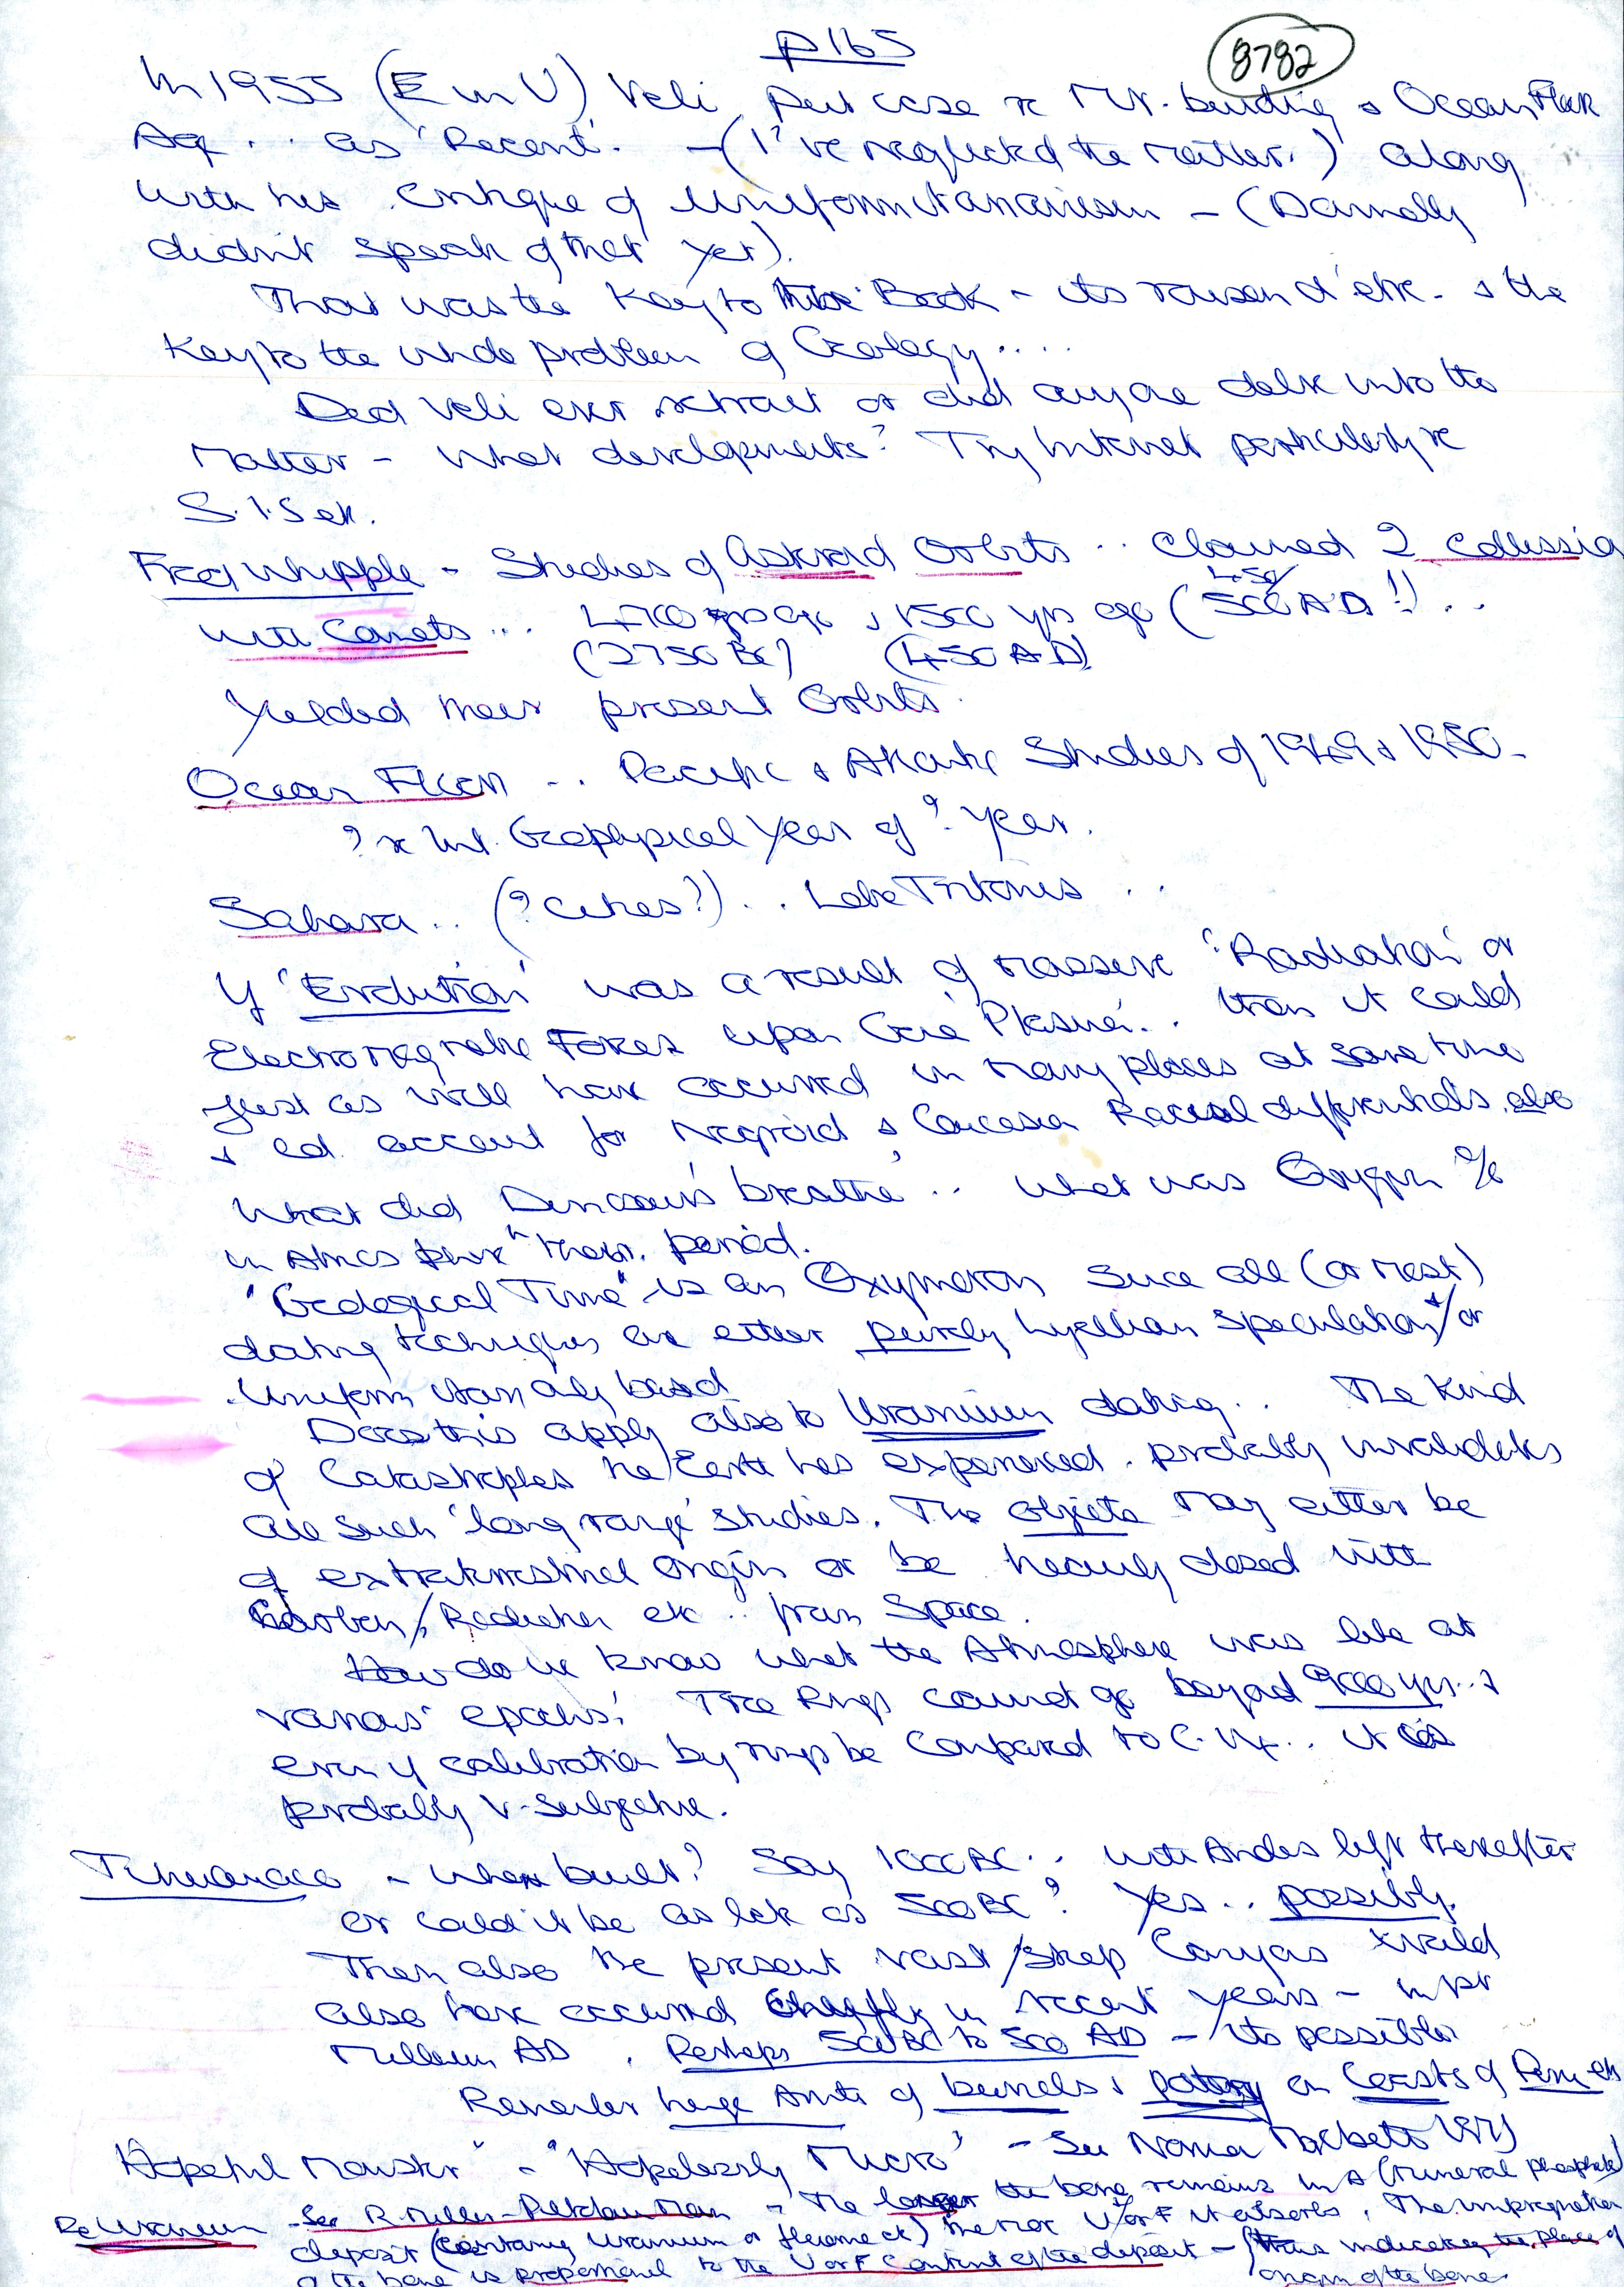 p165
8782
In 1955 (E in U) Veli put case re Mt. building & Ocean Floor
Age .. as 'Recent'. - (I've neglected the matter.) along
with his critique of Uniformitarianism - (Donnelly
didn't speak of that yet).
That was the Key to the Book - its raison d'etre - & the
Key to the whole problem of Geology....
Did Veli ever retract or did anyone delve into the
Matter - What developments? Try Internet particularly re
S.I.S etc.
Fred Whipple - Studies of Asteroid Orbits .. Claimed 2 collisions
with Comets ... 4700 yrs ago & 1500 yrs ago (450/500 AD!) ..
(2750 BC) (450 AD)
Yielded their present Orbits.
Ocean Floor .. Pacific & Atlantic Studies of 1949 & 1950 -
? re Int. Geophysical Year of ? Year.
Sahara .. (? Cities?) .. Lake Tritonis ..
If 'Evolution' was a result of massive 'Radiation' or
Electromagnetic Forces upon Gene 'Plasma'.. then it could
just as well have occurred in many places at same time
& cd. account for Negroid & Caucasian Racial differentials, also
What did Dinosaurs 'breathe' .. What was Oxygen %
in Atmosphere "their" period.
"Geological Time" is an Oxymoron since all (or most)
dating techniques are either purely Lyellian speculation &/or
Uniformitarianly based
Does this apply also to Uranium dating .. The kind
of Catastrophes the Earth has experienced probably invalidates
all such 'long range' studies. The objects may either be
of extraterrestrial origin or be heavily dosed with
Carbon/Radiation etc .. from Space.
How do we know what the Atmosphere was like at
various 'epochs'. Tree Rings cannot go beyond 9000 yrs .. &
even if calibration by rings be compared to C.14 .. it is
probably v. subjective.
Tihuanaco - When built? Say 1000 BC .. with Andes lift thereafter
or could it be as late as 500 BC? Yes .. possibly.
Then also the present vast/steep Canyons would
also have occurred chiefly in recent years - in 1st
Millenium AD. Perhaps 500 BC to 500 AD - its possible
Remember huge Amts of burials & pottery on Coasts of Peru etc
"Hopeful Monster" - "Hopelessly Micro" - See Norman Macbeth 1971)
Re Uranium - See R. Millar - Piltdown Man - The longer the bone remains in A (mineral phosphate)
deposit (containing Uranium or flourine etc) the more U/or F it absorbs. The impregnation
of the bone is proportional to the U or F content of the deposit - (thus indicating the place of
origin of the bone.